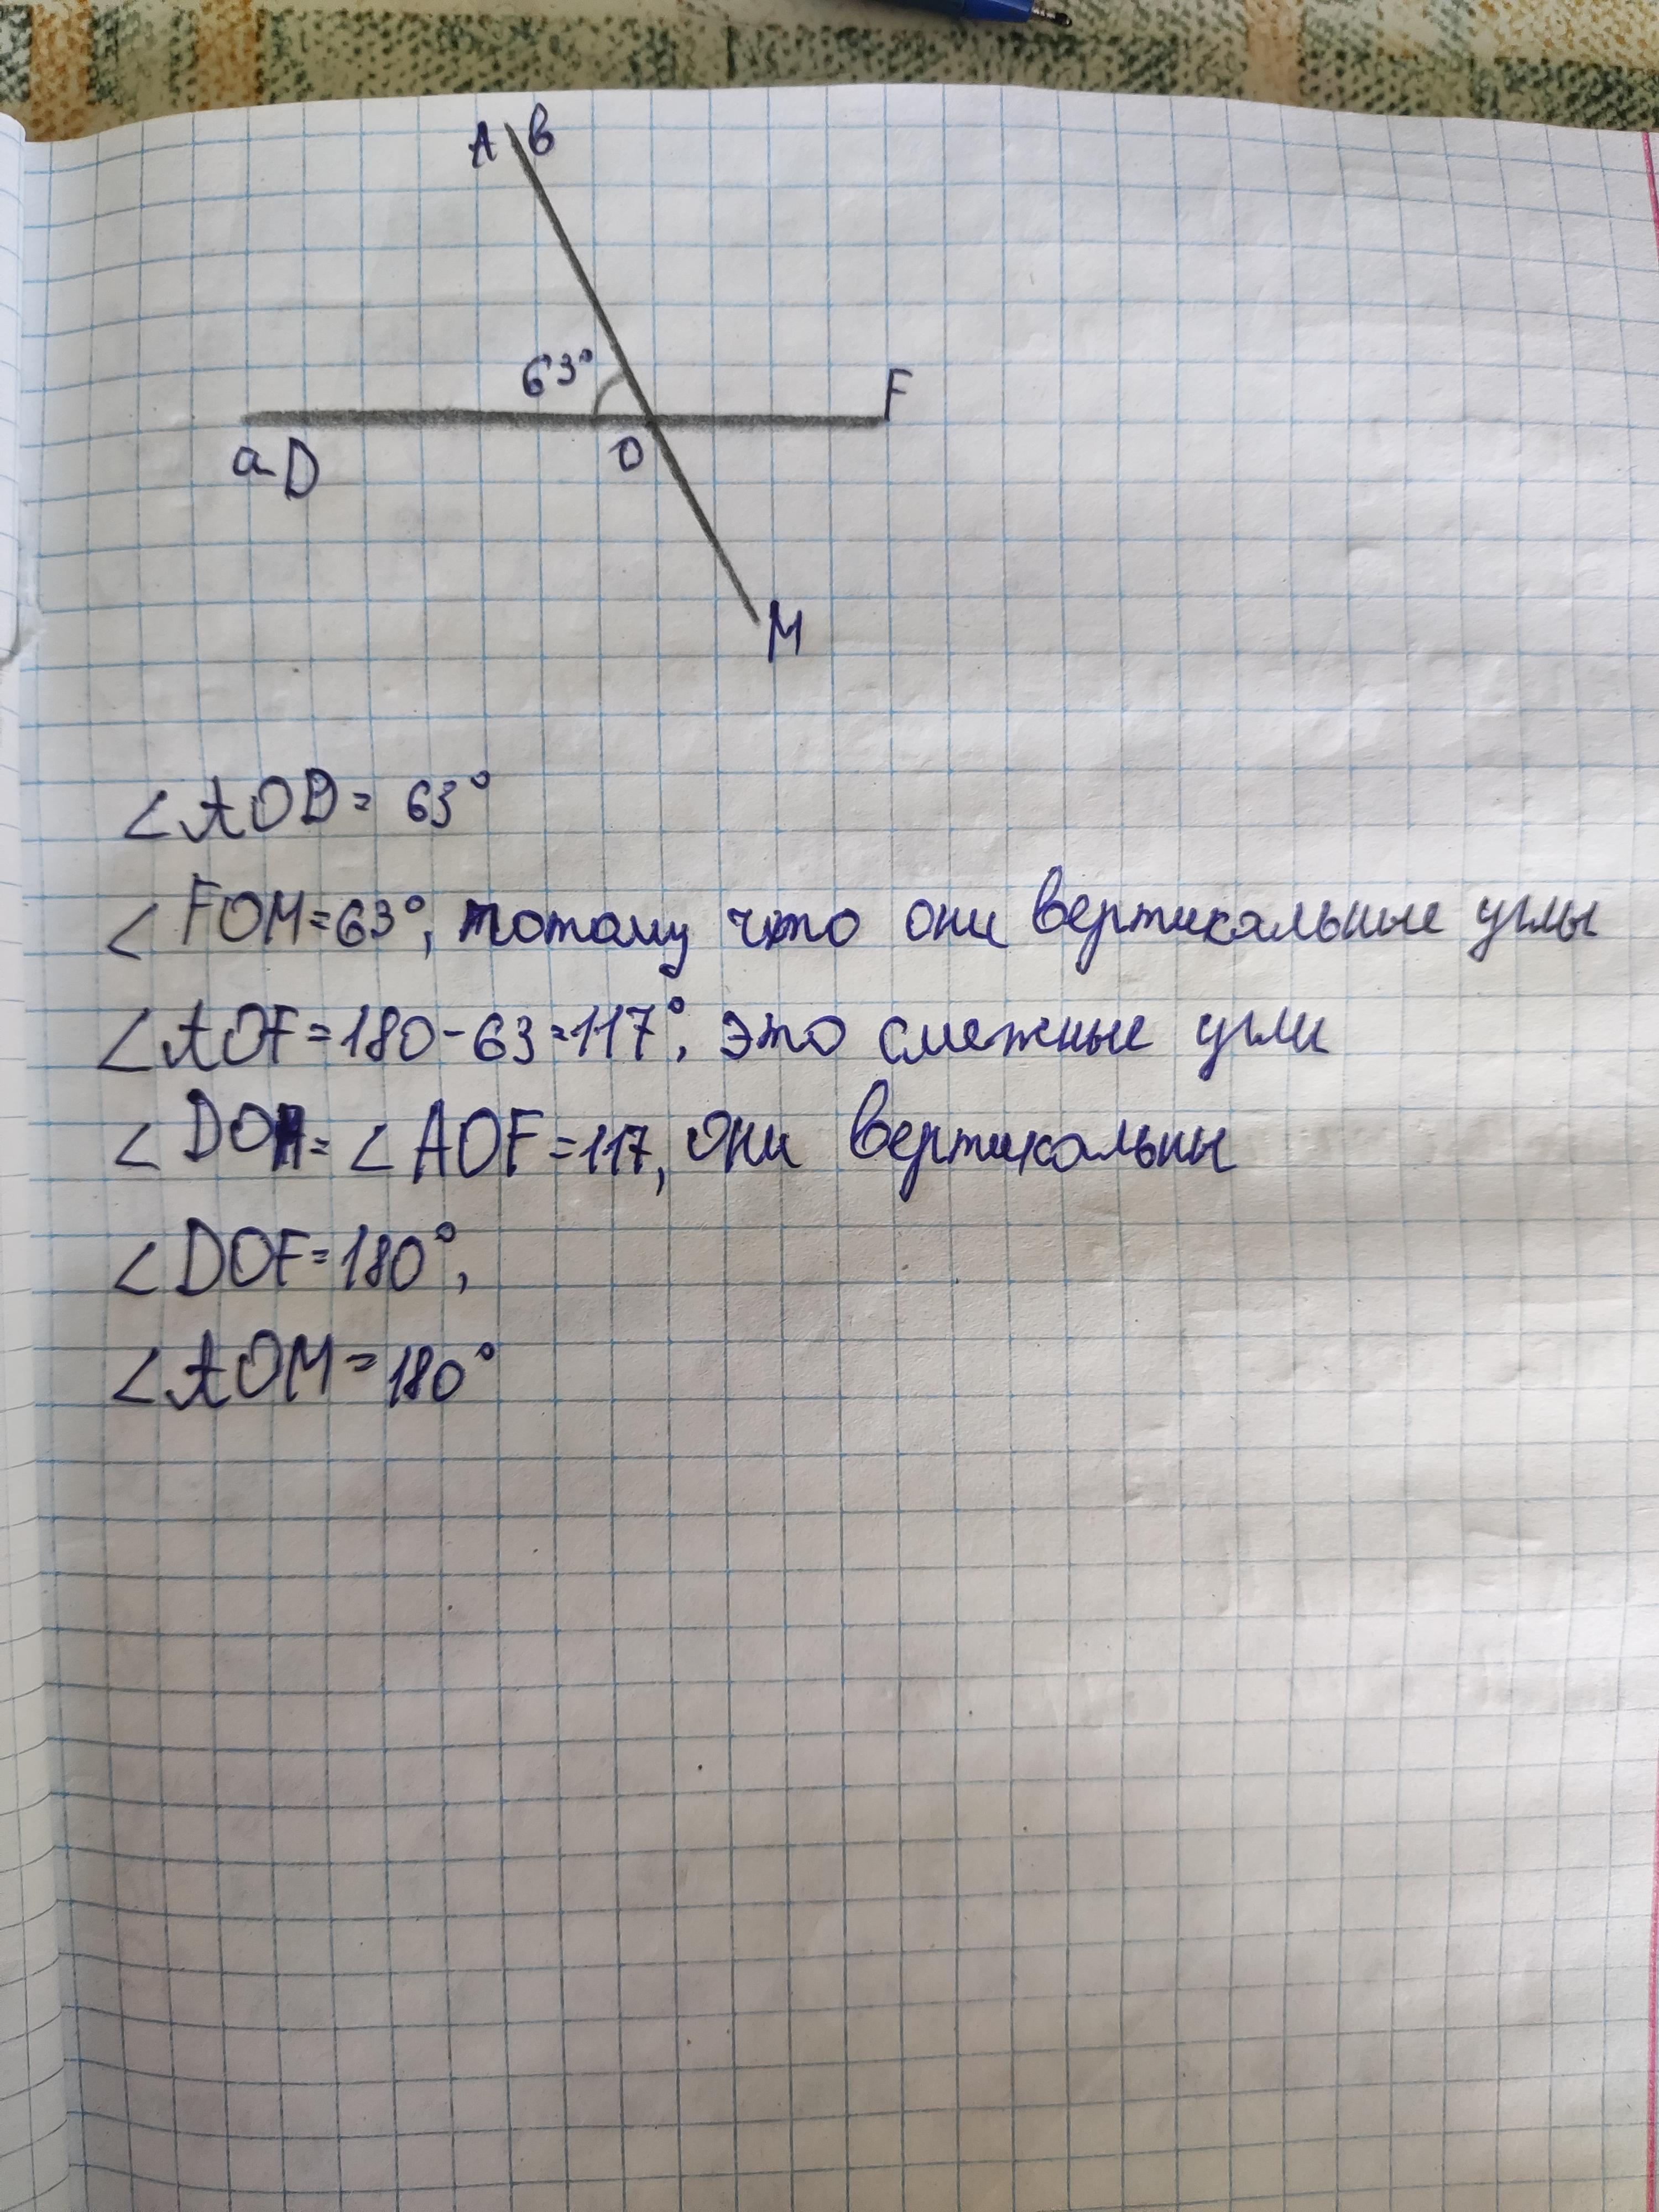 A в
63°
F
a D
O
M
∠AOD = 63°
∠FOM = 63°, потому что они вертикальные углы
∠AOF = 180 - 63 = 117°, это смежные угли
∠DOM = ∠AOF = 117, они вертикальны
∠DOF = 180°,
∠AOM = 180°